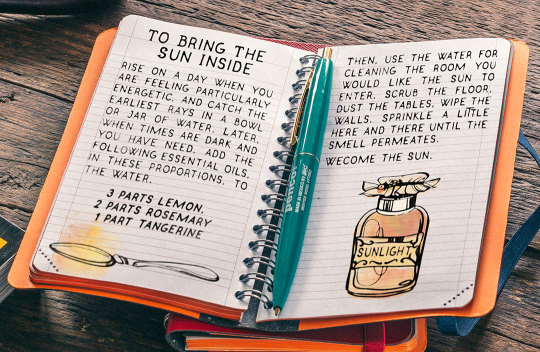 TO BRING THE
SUN INSIDE
RISE ON A DAY WHEN YOU
ARE FEELING PARTICULARLY
ENERGETIC, AND CATCH THE
EARLIEST RAYS IN A BOWL
OR JAR OF WATER. LATER,
WHEN TIMES ARE DARK AND
YOU HAVE NEED, ADD THE
FOLLOWING ESSENTIAL OILS,
IN THESE PROPORTIONS, TO
THE WATER.
3 PARTS LEMON,
2 PARTS ROSEMARY
1 PART TANGERINE
THEN, USE THE WATER FOR
CLEANING THE ROOM YOU
WOULD LIKE THE SUN TO
ENTER. SCRUB THE FLOOR,
DUST THE TABLES, WIPE THE
WALLS. SPRINKLE A LITTLE
HERE AND THERE UNTIL THE
SMELL PERMEATES.
WECOME THE SUN.
SUNLIGHT